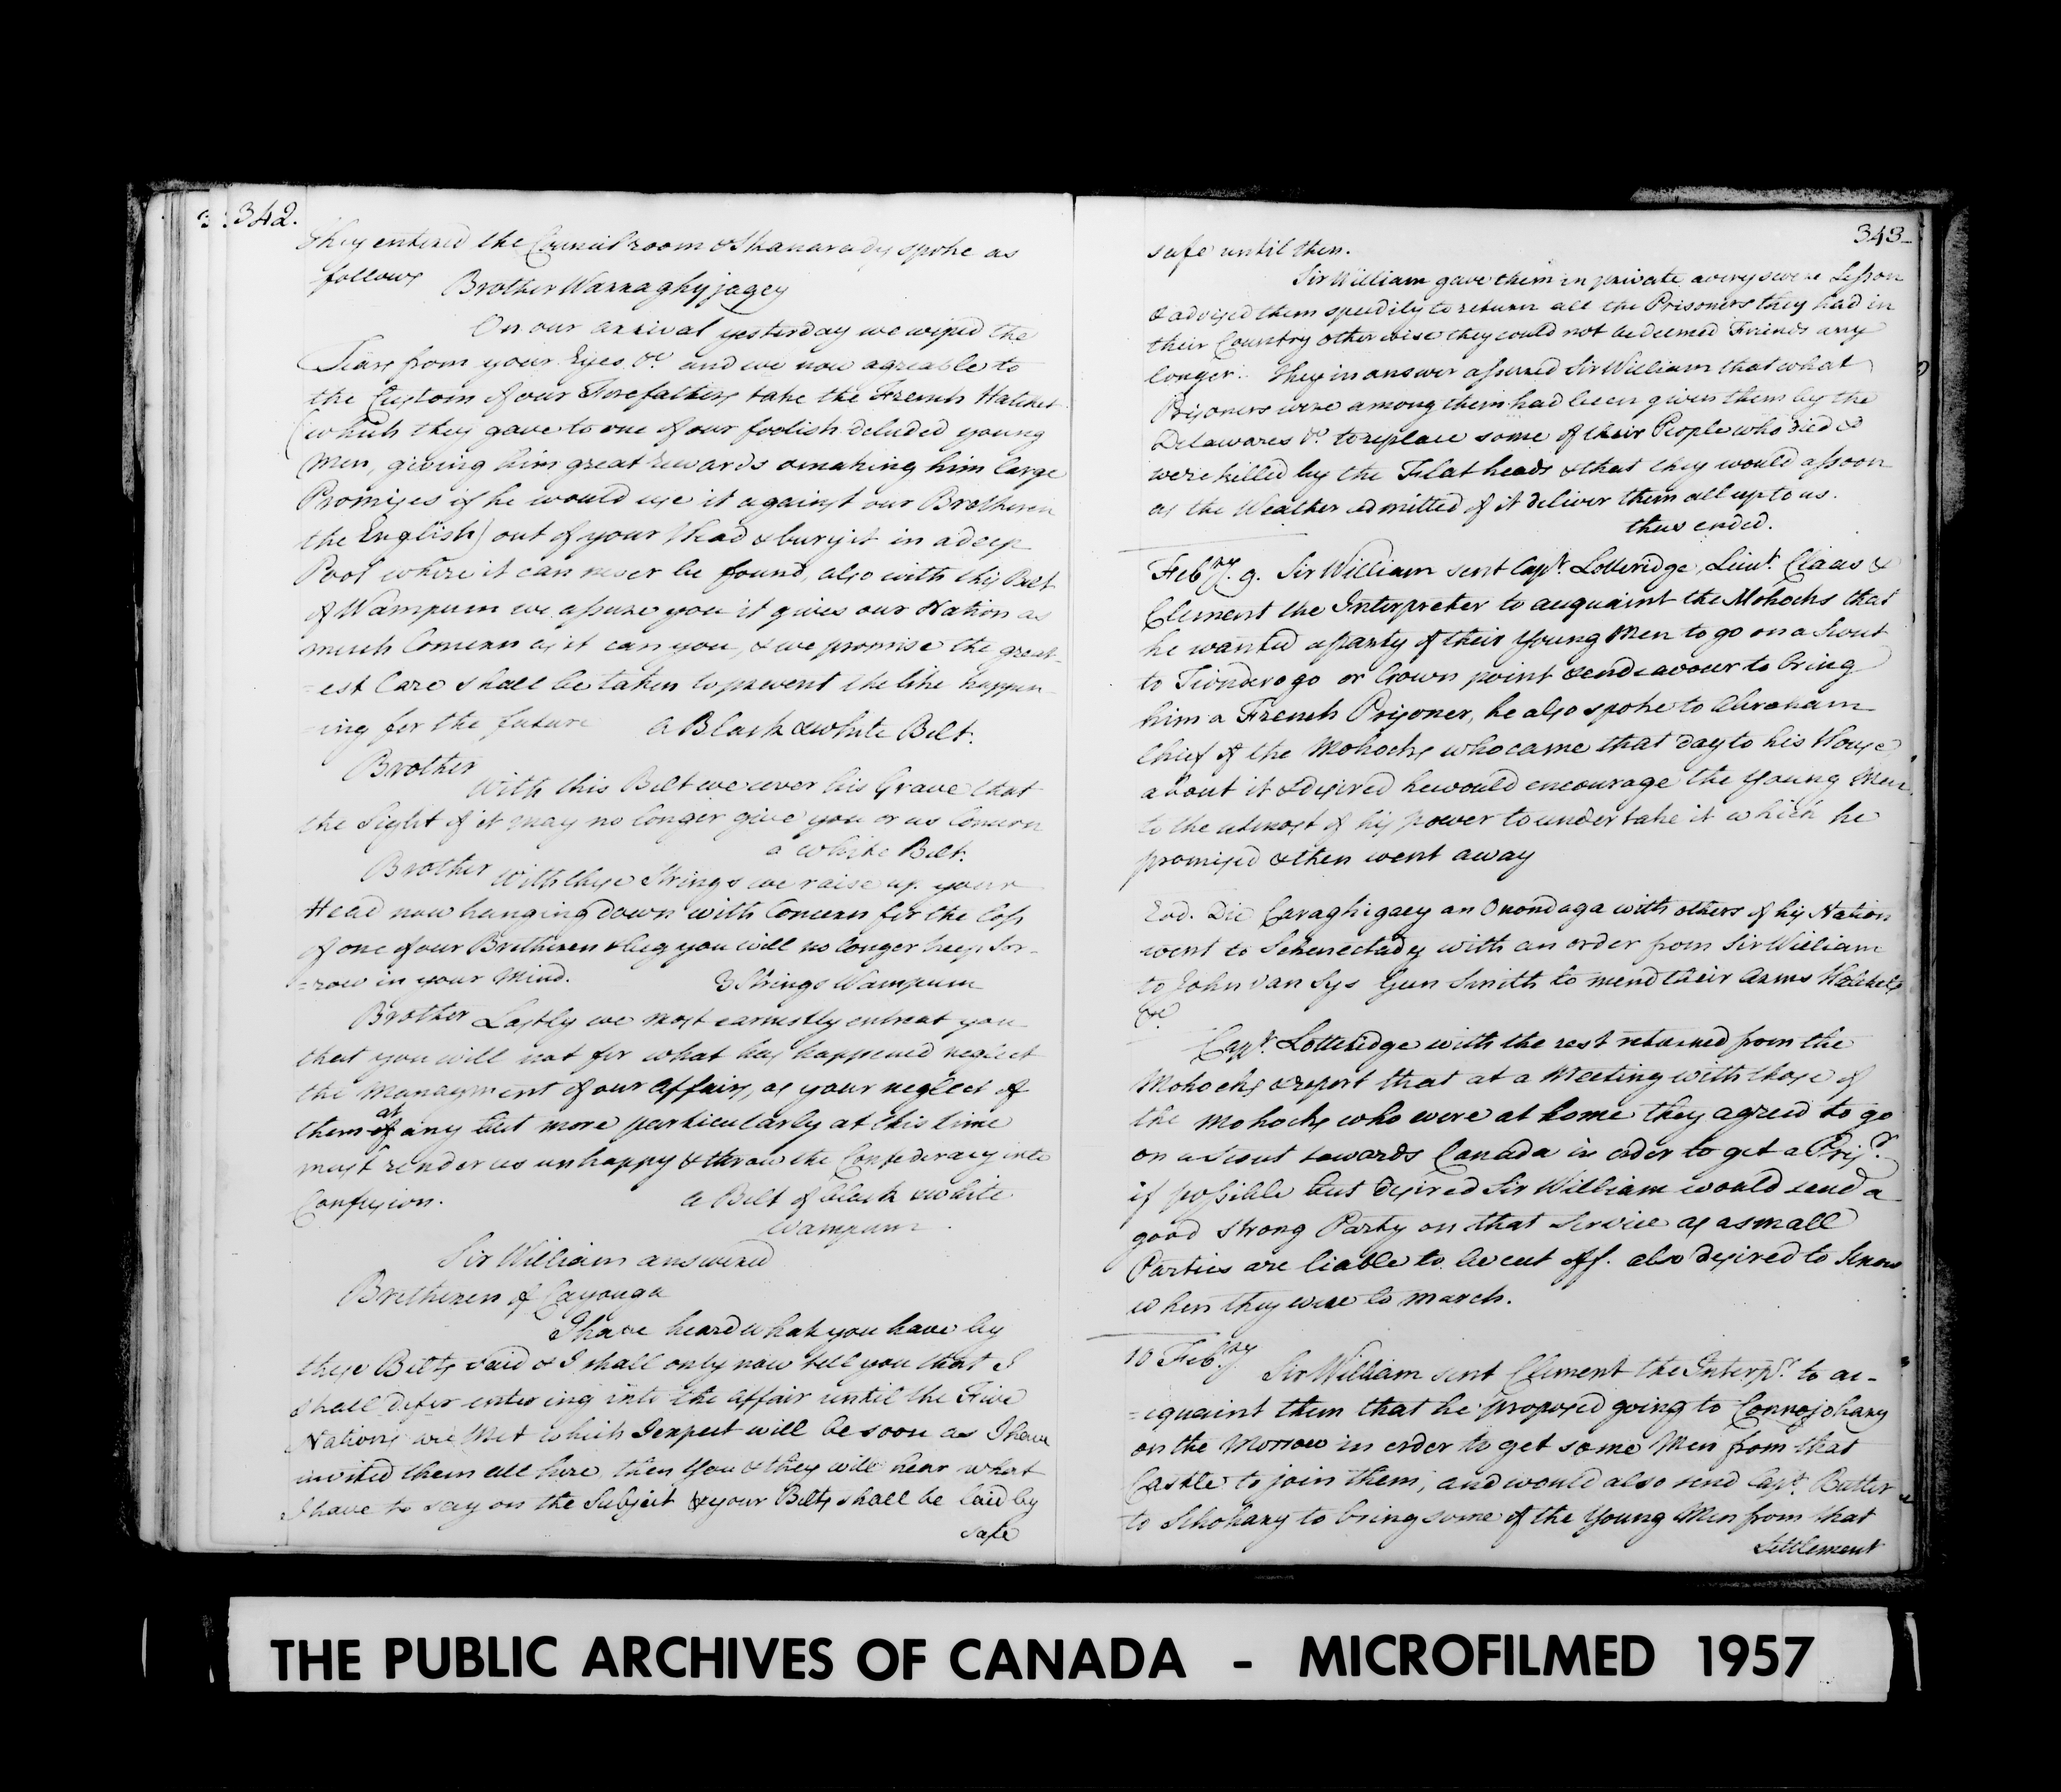 342.
They entered the Council room & Skanarady spoke as
follows
Brother Warraghyjagey
On our arrival yesterday we wiped the
Tears from your Eyes &c. and we now agreable to
the Custom of our Forefathers take the French Hatchet
(which they gave to one of our foolish deluded young
Men, giving him great rewards & making him large
Promises if he would use it against our Brotheren
the English) out of your Head & bury it in a deep
Pool where it can never be found, also with this Belt
of Wampum we assure you it gives our Nation as
much Concern as it can you, & we promise the great-
=est Care shall be taken to prevent the like happen
=ing for the future a Black & white Belt.
Brother
With this Belt we cover his Grave that
the Sight of it may no longer give you or us Concern
a white Belt.
Brother With these Strings we raise up your
Head now hanging down with Concern for the Loss
of one of our Bretheren & beg you will no longer keep Sor-
=row in your Mind. 3 Strings Wampum
Brother Lastly we most earnestly entreat you
that you will not for what has happened neglect
the Managment of our Affairs, as your neglect of
them of at any but more particularly at this time
must render us unhappy & throw the Confederacy into
Confusion. a Belt of black & white
Wampum.
Sir William answered
Bretheren of Cayouga
I have heard what you have by
these Belts said & I shall only now tell you that I
shall defer entering into the affair until the Five
Nations are Met which I expect will be soon as I have
invited them all here, then You & they will hear what
I have to say on the Subject & your Belts shall be laid by
safe
343
safe until then.
Sir William gave them in private a very severe Lesson
& advised them speedily to return all the Prisoners they had in
their Country otherwise they could not be deemed Friends any
longer. They in answer assured Sir William that what
Prisoners were among them had been given them by the
Delawares &c. to replace some of their People who died &
were killed by the Flat heads & that they would assoon
as the Weather admitted of it deliver them all up to us.
thus ended.
Febry. 9. Sir William sent Capt. Lotteridge, Lieut. Claas &
Clement the Interpreter to acquaint the Mohocks that
he wanted a party of their Young Men to go on a Scout
to Tionderogo or Crown point & endeavour to bring
him a French Prisoner, he also spoke to Abraham
Chief of the Mohocks who came that day to his House
about it & desired he would encourage the Young Men
to the utmost of his power to undertake it which he
promised & then went away
Eod. Die Caraghigaey an Onondaga with others of his Nation
went to Schenectady with an order from Sir William
to John van Sys Gun Smith to mend their Arms Hatchets
&c.
Capt. Lotteridge with the rest returned from the
Mohocks & report that at a Meeting with those of
the Mohocks who were at home they agreed to go
on a Scout towards Canada in order to get a Prisr.
if possible but desired Sir William would send a
good strong Party on that Service as a small
Parties are liable to be cut off. also desired to know
when they were to march.
10 Febry.
Sir William sent Clement the Interpr. to ac-
=quaint them that he proposed going to Connojohary
on the Morrow in order to get some Men from that
Castle to join them, and would also send Capt. Butler
to Schohary to bring some of the Young Men from that
Settlement
THE PUBLIC ARCHIVES OF CANADA - MICROFILMED 1957